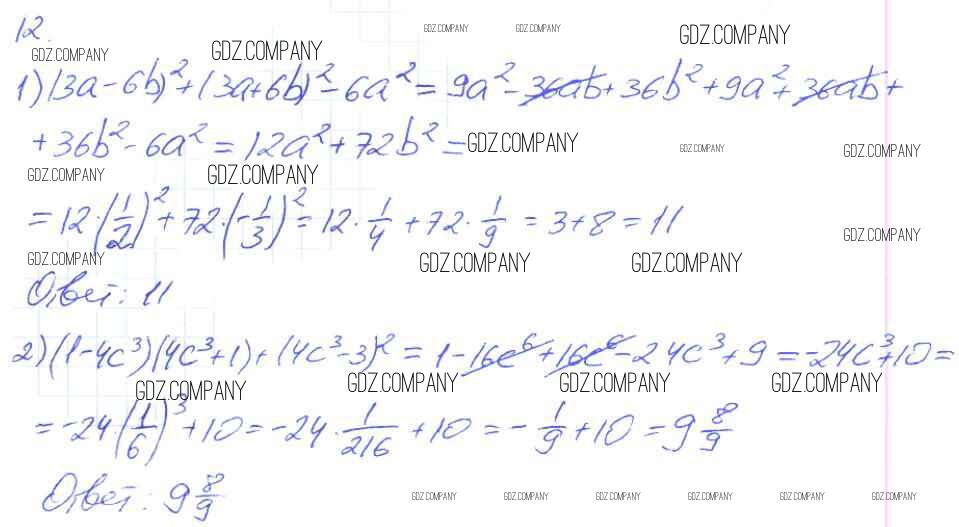 12.
GDZ.COMPANY GDZ.COMPANY GDZ.COMPANY GDZ.COMPANY GDZ.COMPANY
1) (3a-6b)²+(3a+6b)²-6a²=9a²-36ab+36b²+9a²+36ab+
+36b²-6a²=12a²+72b²=
GDZ.COMPANY GDZ.COMPANY GDZ.COMPANY
GDZ.COMPANY GDZ.COMPANY
=12·(1/2)²+72·(-1/3)²=12·1/4+72·1/9=3+8=11
GDZ.COMPANY
GDZ.COMPANY GDZ.COMPANY GDZ.COMPANY
Ответ: 11
2) (1-4c³)(4c³+1)+(4c³-3)²=1-16c⁶+16c⁶-24c³+9=-24c³+10=
GDZ.COMPANY GDZ.COMPANY GDZ.COMPANY GDZ.COMPANY
=-24·(1/6)³+10=-24·1/216+10=-1/9+10=9 8/9
Ответ: 9 8/9
GDZ.COMPANY GDZ.COMPANY GDZ.COMPANY GDZ.COMPANY GDZ.COMPANY GDZ.COMPANY